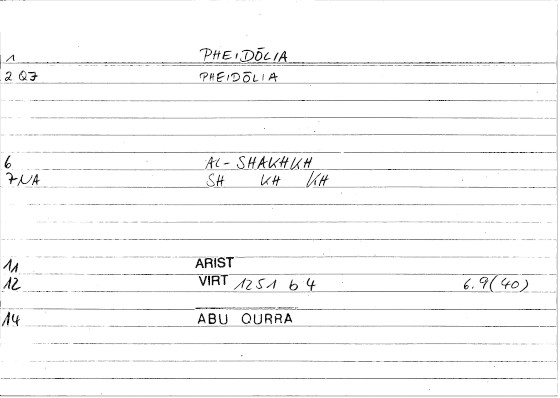 1 PHEIDŌLIA
2 Q7 PHEIDŌLIA
6 AL-SHAKHKH
7 NA SH KH KH
11 ARIST
12 VIRT 1251 b 4 6.9(40)
14 ABU QURRA